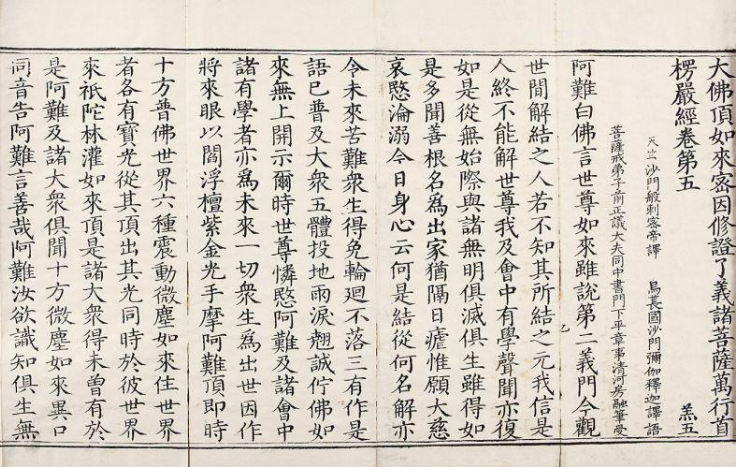 大佛頂如來密因修證了義諸菩薩萬行首
楞嚴經卷第五 羔五
天竺沙門般剌密帝譯 烏長國沙門彌伽釋迦譯語
菩薩戒弟子前正議大夫同中書門下平章事清河房融筆受
阿難白佛言世尊如來雖說第二義門今觀
世間解結之人若不知其所結之元我信是
人終不能解世尊我及會中有學聲聞亦復
如是從無始際與諸無明俱滅俱生雖得如
是多聞善根名為出家猶隔日瘧惟願大慈
哀愍淪溺今日身心云何是結從何名解亦
令未來苦難衆生得免輪迴不落三有作是
語已普及大衆五體投地雨淚翹誠佇佛如
來無上開示爾時世尊憐愍阿難及諸會中
諸有學者亦為未來一切衆生為出世因作
將來眼以閻浮檀紫金光手摩阿難頂即時
十方普佛世界六種震動微塵如來住世界
者各有寶光從其頂出其光同時於彼世界
來祇陀林灌如來頂是諸大衆得未曾有於
是阿難及諸大衆俱聞十方微塵如來異口
同音告阿難言善哉阿難汝欲識知俱生無